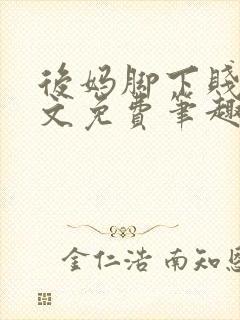 後妈脚下賤
文免費筆趣
金仁浩 南知恩